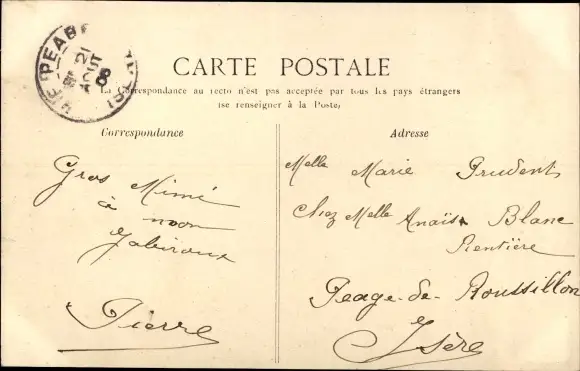 PEAGE
21
AOUT
08
ISÈRE
CARTE POSTALE
La Correspondance au recto n'est pas acceptée par tous les pays étrangers
(se renseigner à la Poste)
Correspondance
Adresse
Gros Mimi
à
noon
Pierre
Melle Marie Prudent
Chez Melle Anaïs Blanc
Rentière
Peage-de-Roussillon
Isère